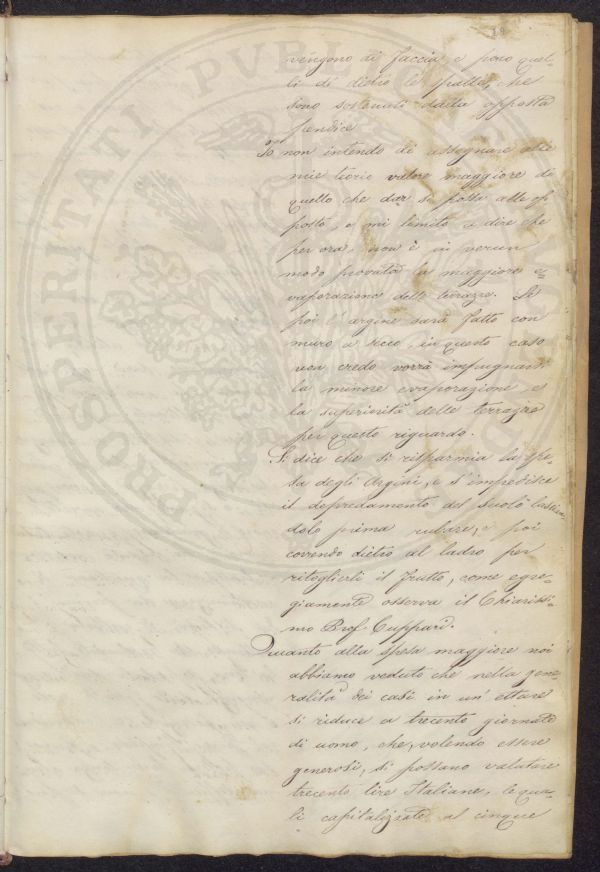 18
vengono di faccia, e poco quel-
li di dietro le spalle, che
sono sostenuti dalla opposta
pendice
Io non intendo di assegnare alle
mie teorie valore maggiore di
quello che dar si possa alle op
poste, e mi limito a dire che
per ora, non è in verun
modo provata la maggiore e-
vaporazione delle terrazze. Se
poi l'argine sarà fatto con
muro a secco, in questo caso
non credo vorrà impugnarsi
la minore evaporazione, e
la superiorità delle terrazze
per questo riguardo.
Si dice che si risparmia la spe-
sa degli Argini, e s'impedisce
il depredamento del suolo lascian
dolo prima rubare, e poi
correndo dietro al ladro per
ritoglierli il frutto, come egre-
giamente osserva il Chiarissi-
mo Prof. Cuppari.
Quanto alla spesa maggiore noi
abbiamo veduto che nella gene-
ralità dei casi in un' ettare
si riduce a trecento giornate
di uomo, che, volendo essere
generosi, si possano valutare
trecento lire Italiane, le qua-
li capitalizzate al cinque
PROSPERITATI PVBLICAE